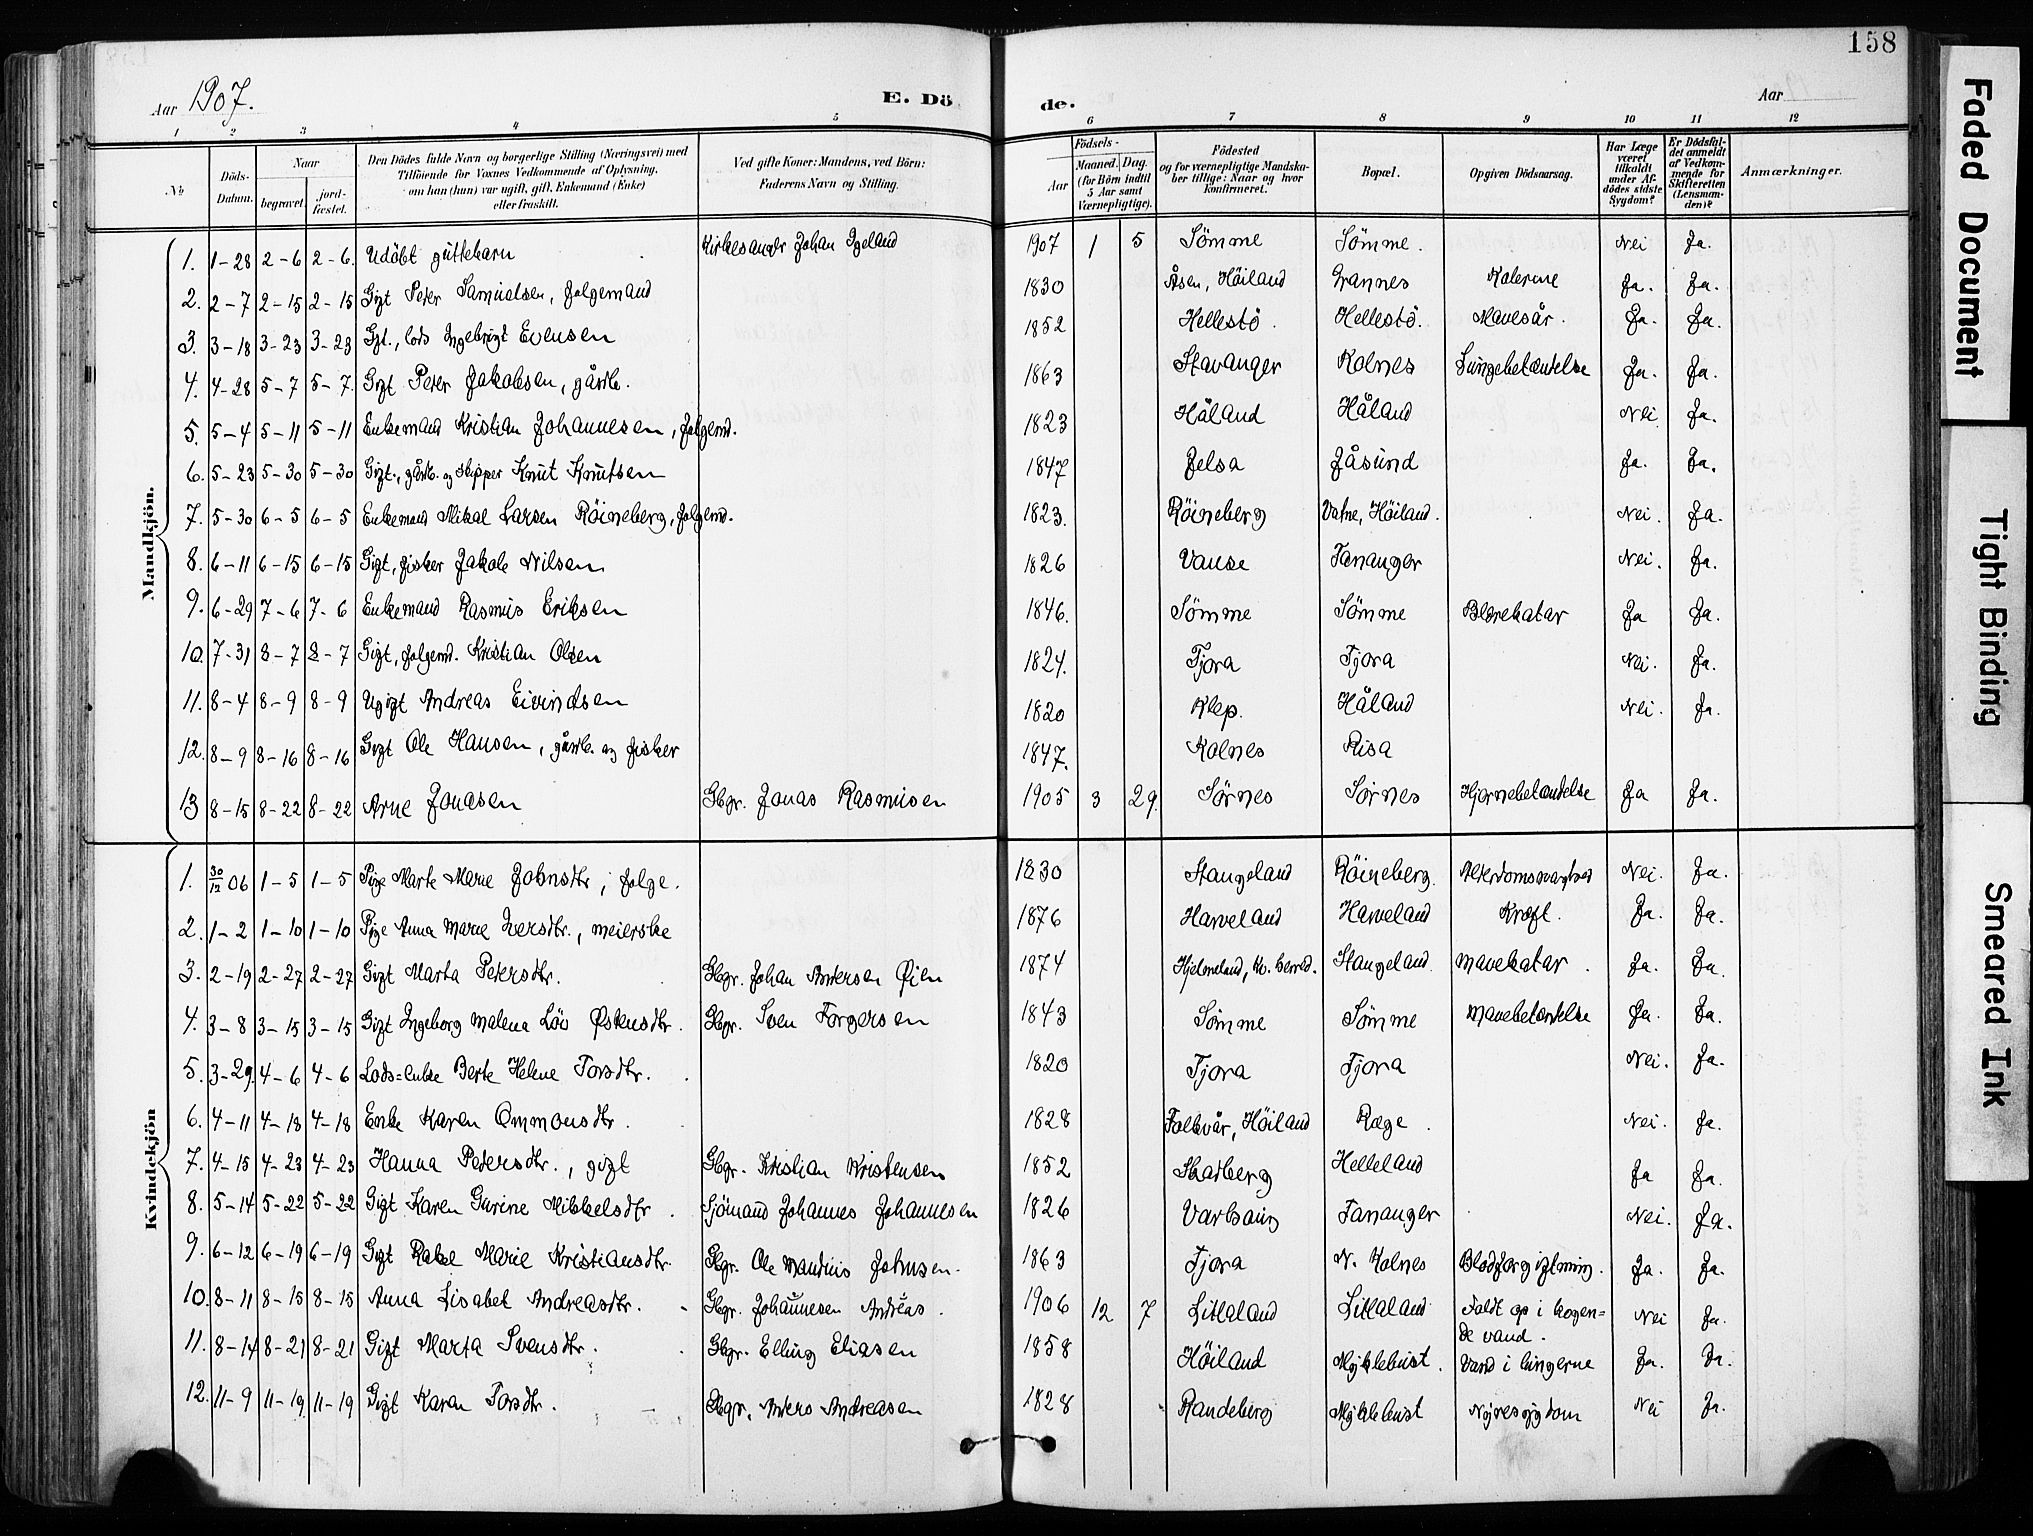 158
Aar 1907.
E. Dö
de.
Aar
1 2 3 4 5 6 7 8 9 10 11 12
No
Döds-Datum.
Naar
begravet.
jord-fæstet.
Den Dödes fulde Navn og borgerlige Stilling (Næringsvei) med Tilföiende for Voxnes Vedkommende af Oplysning, om han (hun) var ugift, gift, Enkemand (Enke) eller fraskilt.
Ved gifte Koner: Mandens, ved Börn: Faderens Navn og Stilling.
Födsels-
Aar
Maaned. Dag.
(for Börn indtil 5 Aar samt Værnepligtige).
Födested og for værnepligtige Mandskaber tillige: Naar og hvor konfirmeret.
Bopæl.
Opgiven Dödsaarsag.
Har Læge været tilkaldt under Afdödes sidste Sygdom?
Er Dödsfaldet anmeldt af Vedkommende for Skifteretten (Lensmanden)?
Anmærkninger.
Mandkjön.
1. 1-28 2-6 2-6. Udöbt guttebarn Kirkesanger Johan Igeland 1907 1 5 Sömme Sömme. Nei Ja.
2. 2-7 2-15 2-15 Gift Peter Samuelsen, folgemand 1830 Åsen, Höiland Grannes Kolerine Ja. Ja.
3. 3-18 3-23 3-23 Gft., lods Ingebrigt Evensen 1852 Hellestö. Hellestö. Mavesår. Ja. Ja.
4. 4-28 5-7 5-7. Gift Peter Jakobsen, gårdb. 1863 Stavanger Kolnes Lungebetændelse Ja. Ja.
5. 5-4 5-11 5-11 Enkemand Kristian Johannesen, folgemd. 1823 Håland Håland Nei Ja.
6. 5-23 5-30 5-30 Gift., gårdb. og skipper Knut Knutsen 1847 Jelsa Jåsund Ja. Ja.
7. 5-30 6-5 6-5 Enkemand Mikal Larsen Röineberg, folgemd. 1823. Röineberg Vatne, Höiland. Nei. Ja.
8. 6-11 6-15 6-15 Gift, fisker Jakob Nilsen 1826 Vanse Tananger Nei. Ja.
9. 6-29 7-6 7-6 Enkemand Rasmus Eriksen 1846. Sömme Sömme Blærekatar Ja Ja.
10. 7-31 8-7 8-7 Gift, folgemd. Kristian Olsen 1824. Tjora Tjora Nei. Ja.
11. 8-4 8-9 8-9 Ugift Andreas Eivindsen 1820 Klep. Håland Nei. Ja.
12. 8-9 8-16 8-16 Gift Ole Hansen, gårdb. og fisker 1847. Kolnes Risa
13 8-15 8-22 8-22 Arne Jonasen Gbgr. Jonas Rasmusen 1905 3 29. Sörnes Sörnes Hjernebetændelse Ja Ja.
Kvindekjön
1. 30/12 06 1-5 1-5 Pige Marte Marie Johnsdtr, folge. 1830 Stangeland Röineberg. Alderdomssvaghed Nei. Ja.
2. 1-2 1-10 1-10 Pige Anna Marie Iversdtr., meierske 1876 Harveland Harveland Kræft. Ja. Ja.
3. 2-19 2-27 2-27 Gift Marta Petersdtr. Gbgr. Johan Andersen Öien 1874 Hjelmeland, Stangeland. Mavekatar. Ja. Ja.
4. 3-8 3-15 3-15 Gift Ingeborg Malena Löv Östensdtr. Gbgr. Sven Torgersen 1843 Sömme Sömme Mavebetændelse Ja. Ja.
5. 3-29. 4-6 4-6 Lods=enke Berte Helene Torsdtr. 1820 Tjora Tjora Nei. Ja.
6. 4-11 4-18 4-18 Enke Karen Ommonsdtr. 1828 Folkvår, Höiland Ræge. Nei. Ja.
7. 4-15 4-23 4-23 Hanna Petersdtr., gift Gbgr. Kristian Kristensen 1852 Skadberg Helleland Ja Ja.
8. 5-14 5-22 5-22 Gift Karen Gurine Mikkelsdtr. Sjömand Johannes Johannesen 1826 Varhaug Tananger Nei. Ja.
9. 6-12 6-19 6-19 Gift Rakel Marie Kristiansdtr. Gbgr. Ole Mandius Johnsen. 1863 Tjora N. Kolnes Blodforgiftning. Ja. Ja.
10. 8-11 8-15 8-15 Anna Lisabet Andreasdtr. Gbgr. Johannesen Andreas. 1906 12 7 Litlaland Litlaland Faldt op i kogen=
de vand. Nei Ja.
11. 8-14 8-21 8-21 Gift Marta Svensdtr. Gbgr. Elling Eliasen 1858 Höiland Myklebust. Vand i lungerne Ja. Ja.
12. 11-9 11-19. 11-19 Gift Karen Torsdtr. Gbgr. Anders Andreasen 1828 Randeberg Myklebust Nyresygdom Nei Ja.
Faded Document
Tight Binding
Smeared Ink